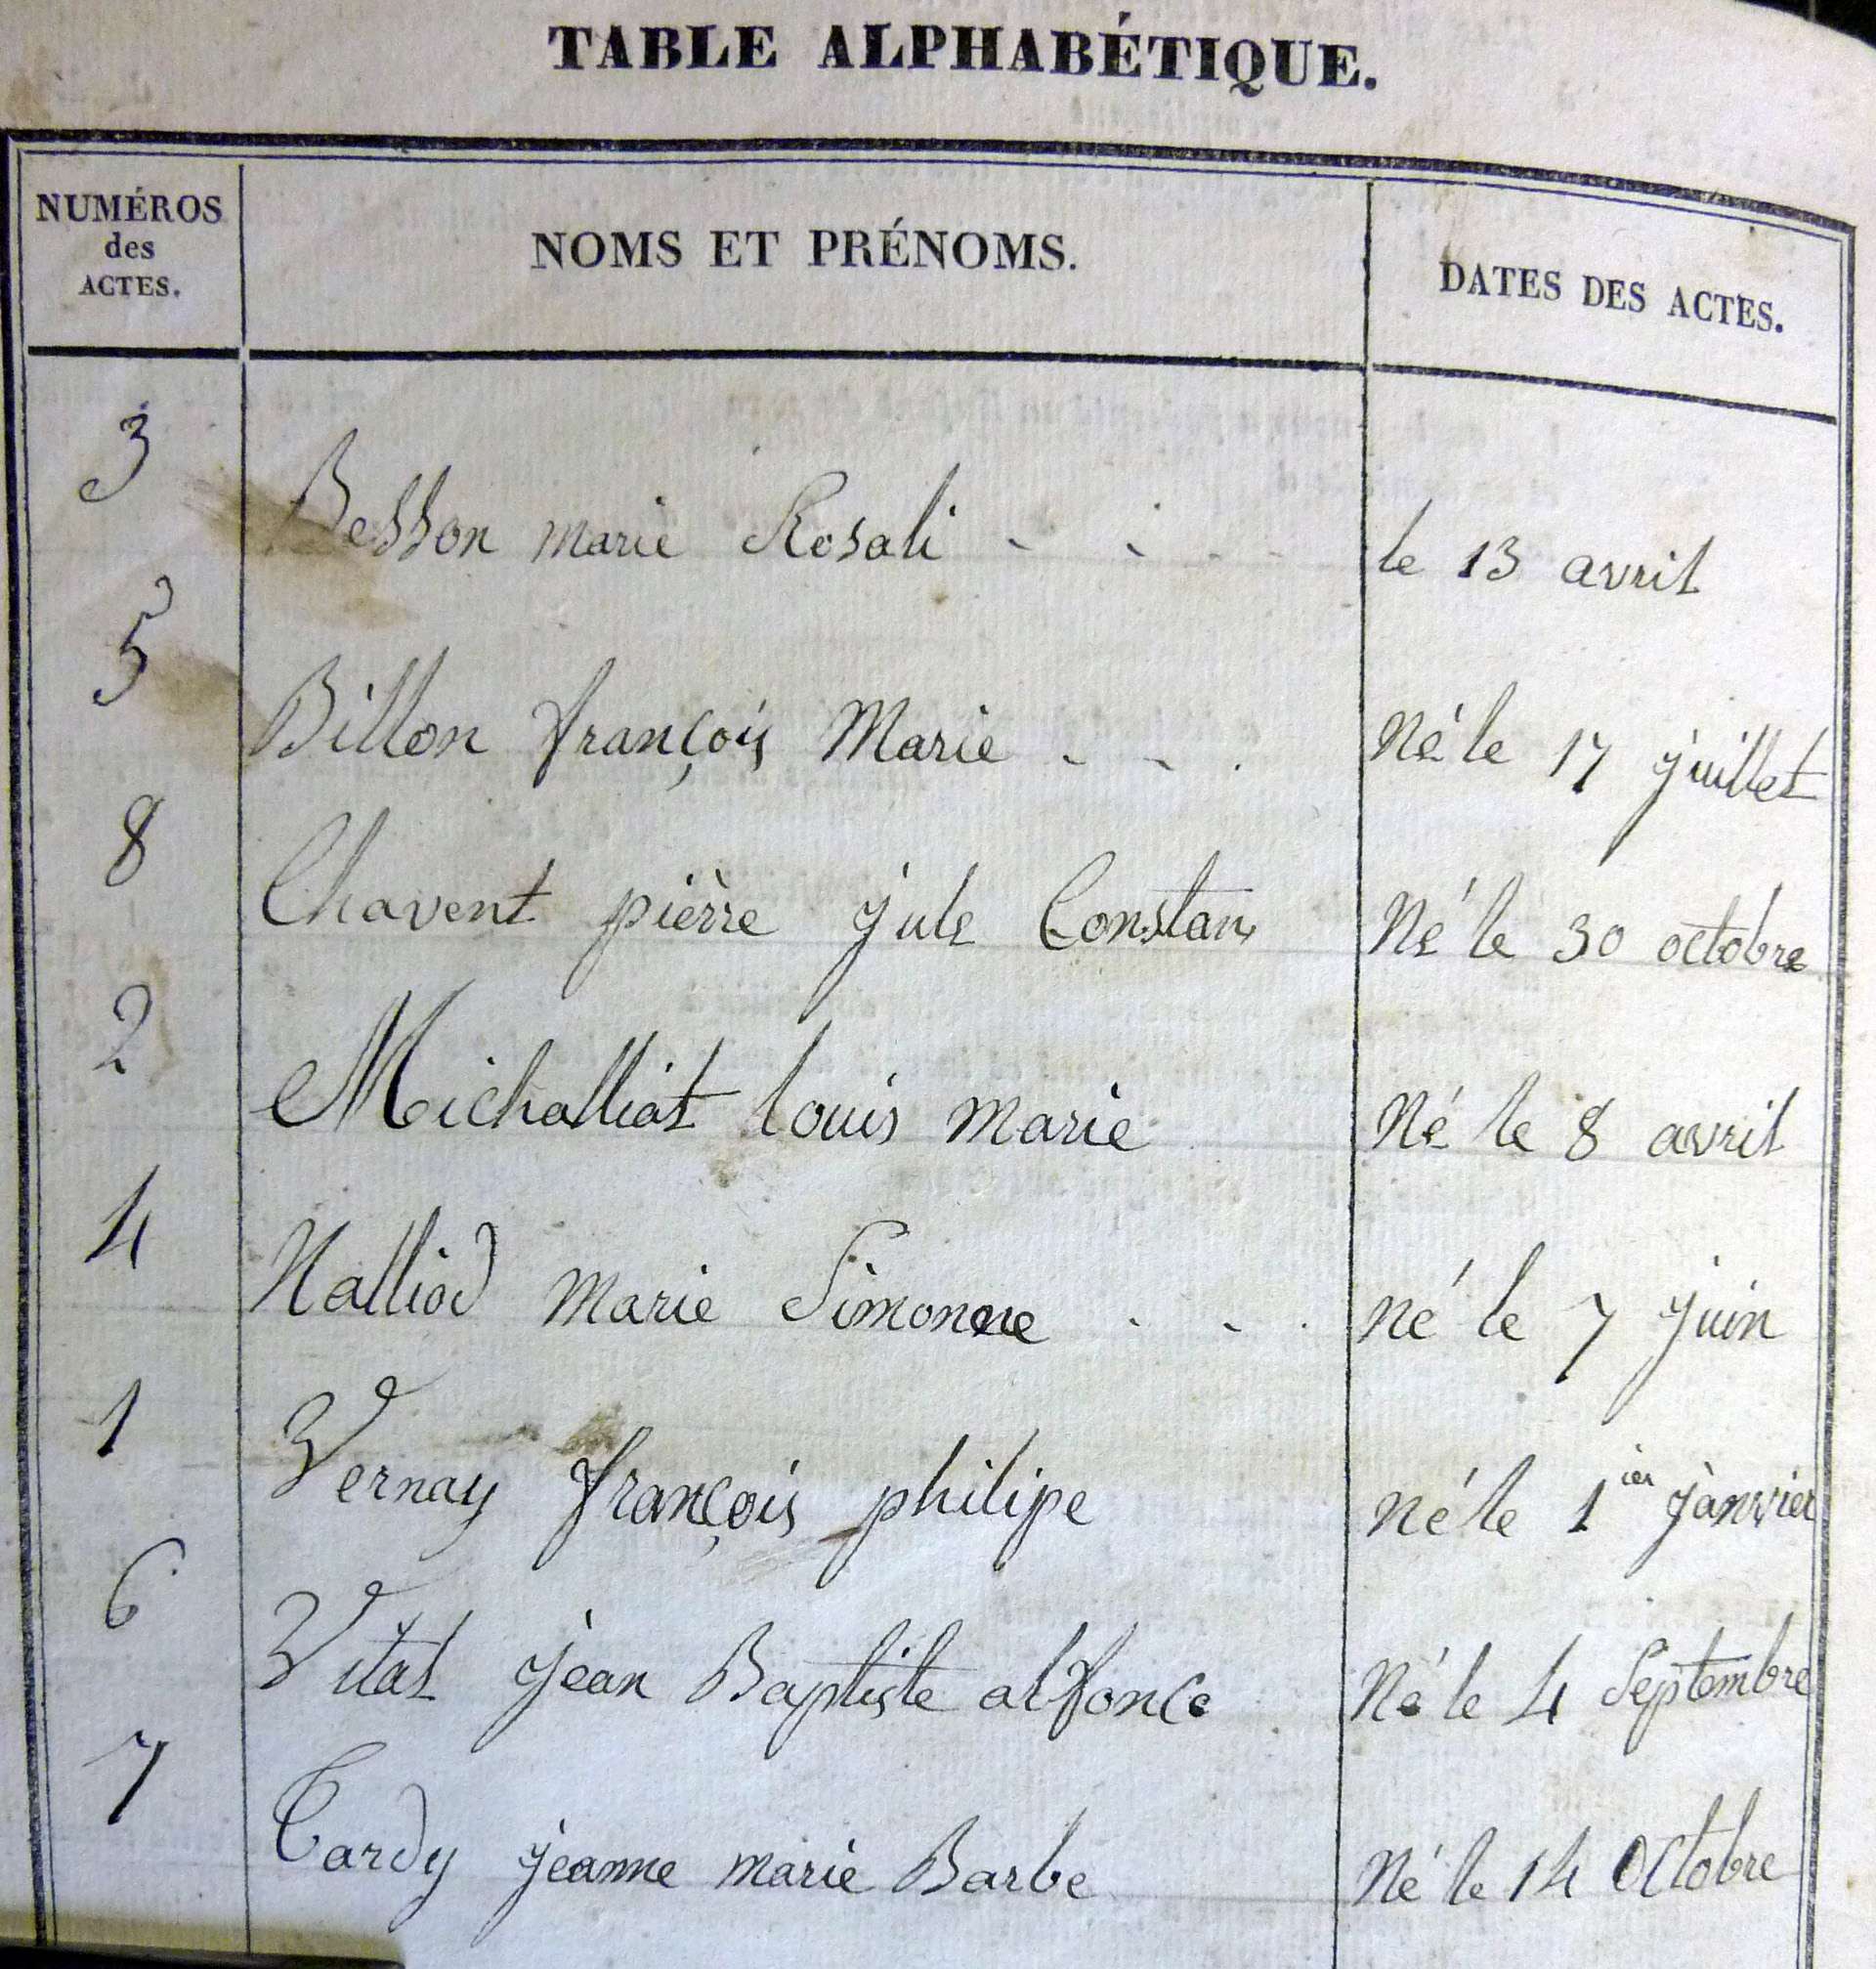 TABLE ALPHABÉTIQUE.
NUMÉROS
des
ACTES.
NOMS ET PRÉNOMS.
DATES DES ACTES.
3 Besson marie Rosali - - - - le 13 avril
5 Billon françois Marie - - . Né le 17 juillet
8 Chavent pièrre jule Constan Né le 30 octobre
2 Michalliat louis marie Né le 8 avril
4 Nalliod Marie Simonne - - . né le 7 juin
1 Vernay françois philipe né le 1ier janvier
6 Vital jean Baptiste alfonce Né le 4 Septembre
7 Tardy jeanne marie Barbe Né le 14 Octobre